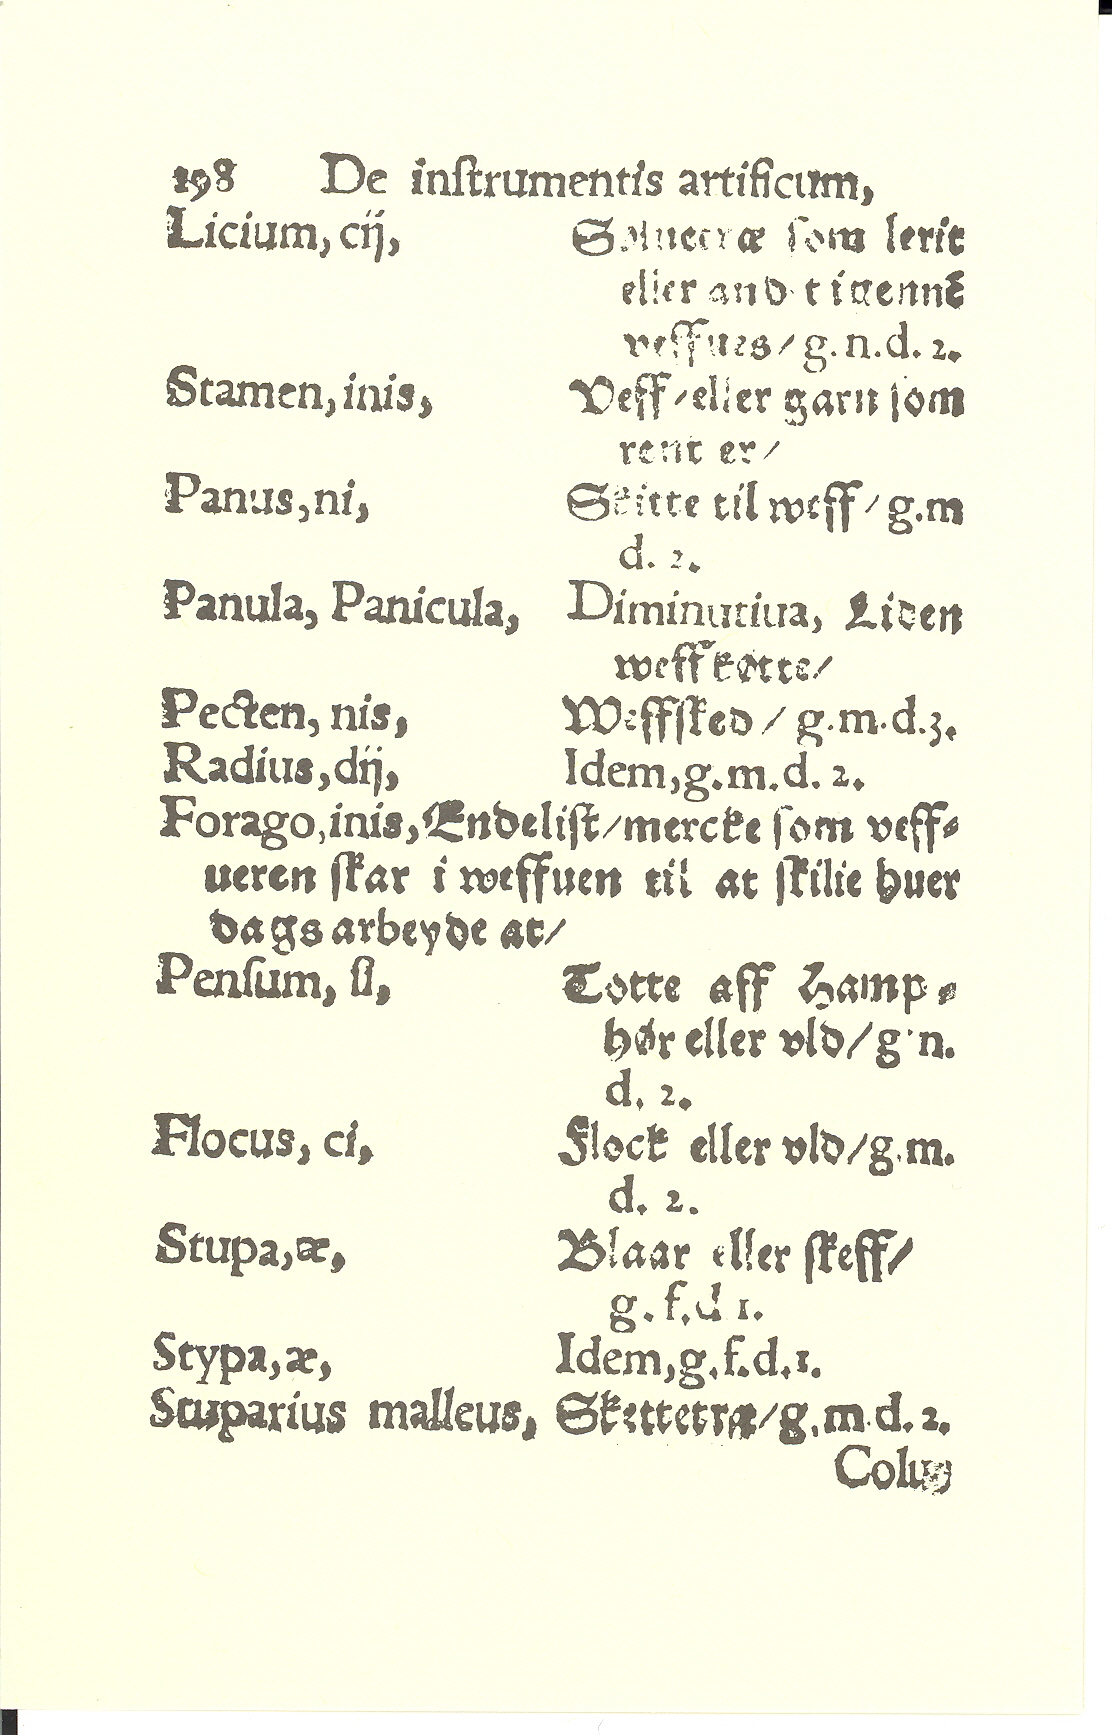 198 De inſtrumentis artificum,
Licium, cij, ſom lerit
eller and t igennē
veffues / g. n. d. 2.
Stamen, inis, Veff / eller garn ſom
rent er /
Panus, ni, Skitte til weff / g. m
d. 2.
Panula, Panicula, Diminutiua, Liden
weffſkøtte /
Pecten, nis, Weffſked / g. m. d. 3.
Radius, dij, Idem, g. m. d. 2.
Forago, inis, Endeliſt / mercke ſom veff⸗
ueren ſkar i weffuen til at ſkilie huer
dags arbeyde at /
Penſum, ſi, Totte aff Hamp⸗
hør eller vld / g. n.
d. 2.
Flocus, ci, Flock eller vld / g. m.
d. 2.
Stupa, æ, Blaar eller ſkeff /
g. f. d 1.
Stypa, æ, Idem, g. f. d. 1.
Stuparius malleus, Skettetræ / g. m. d. 2.
Colus